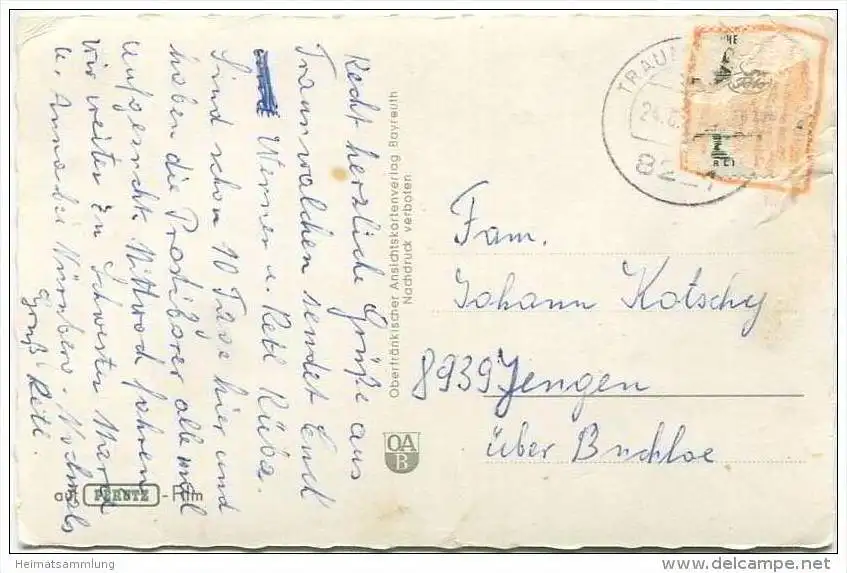 Recht herzliche Grüße aus
Traunwalchen sendet Euch
Werner u. Retl Kuba.
Sind schon 10 Tage hier und
haben die alle mal
aufgesucht. Mittwoch fahren
wir weiter zu Schwester Maria
u. Anna bei Nürnberg. Nochmals
Gruß Retl.
Oberfränkischer Ansichtskartenverlag Bayreuth
Nachdruck verboten
OA
B
auf PERUTZ - Film
TRAUN
24.8.
82 1
Fam.
Johann Kotschy
8939 Jengen
über Buchloe
Heimatsammlung
www.delcampe.net